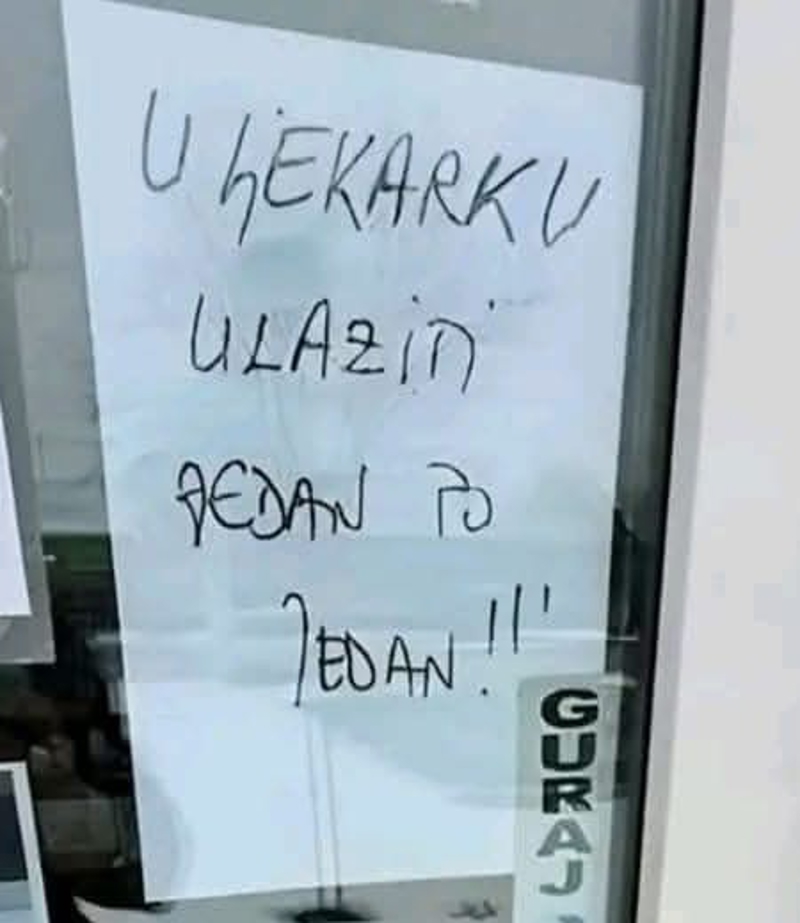 U LJEKARKU
ULAZITI
JEDAN PO
JEDAN!!!
GURAJ